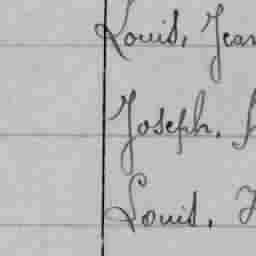 Louis, Jean
Joseph,
Louis,